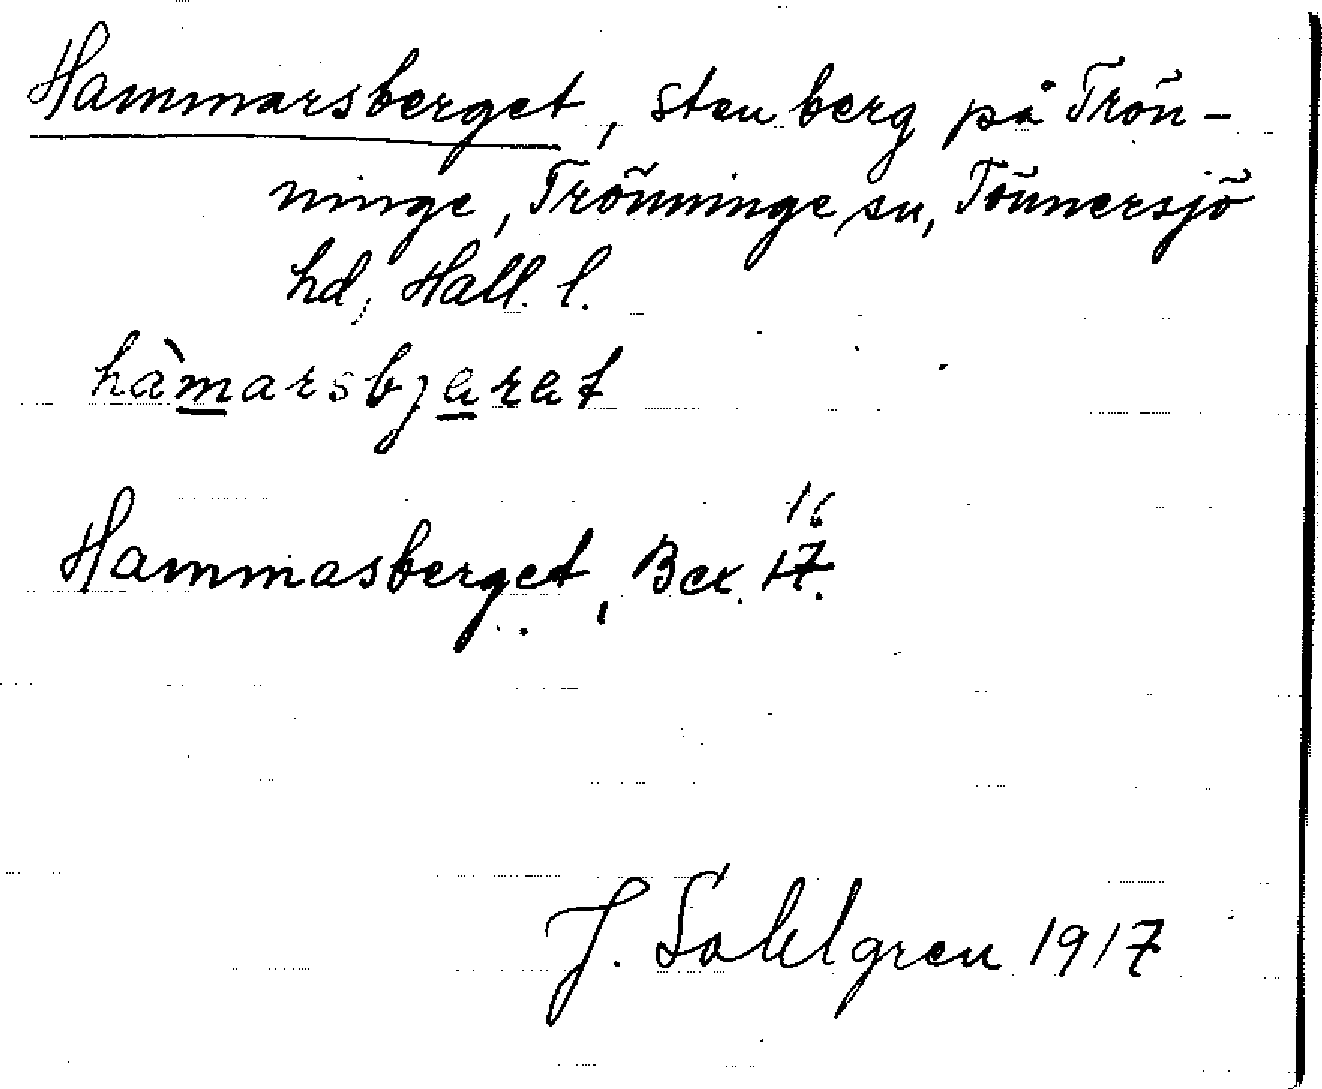 Hammarsberget, stenberg på Trön-
ninge, Trönninge sn, Tönnersjö
hd, Hall. l.
hàmarsbjarat
16
Hammasberget, Bex. 17.
J. Sahlgren 1917